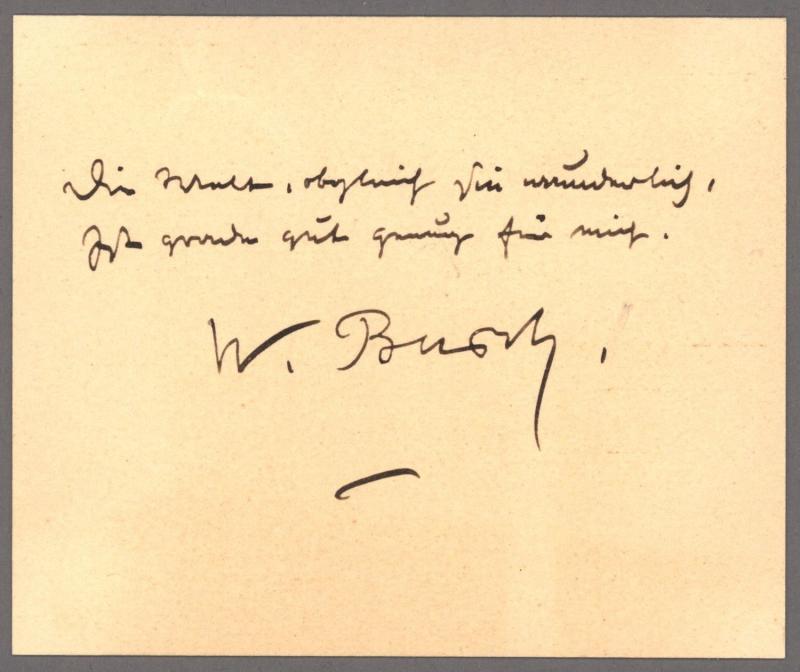 Die Welt, obgleich sie wunderlich,
Ist grade gut genug für mich.
W. Busch.